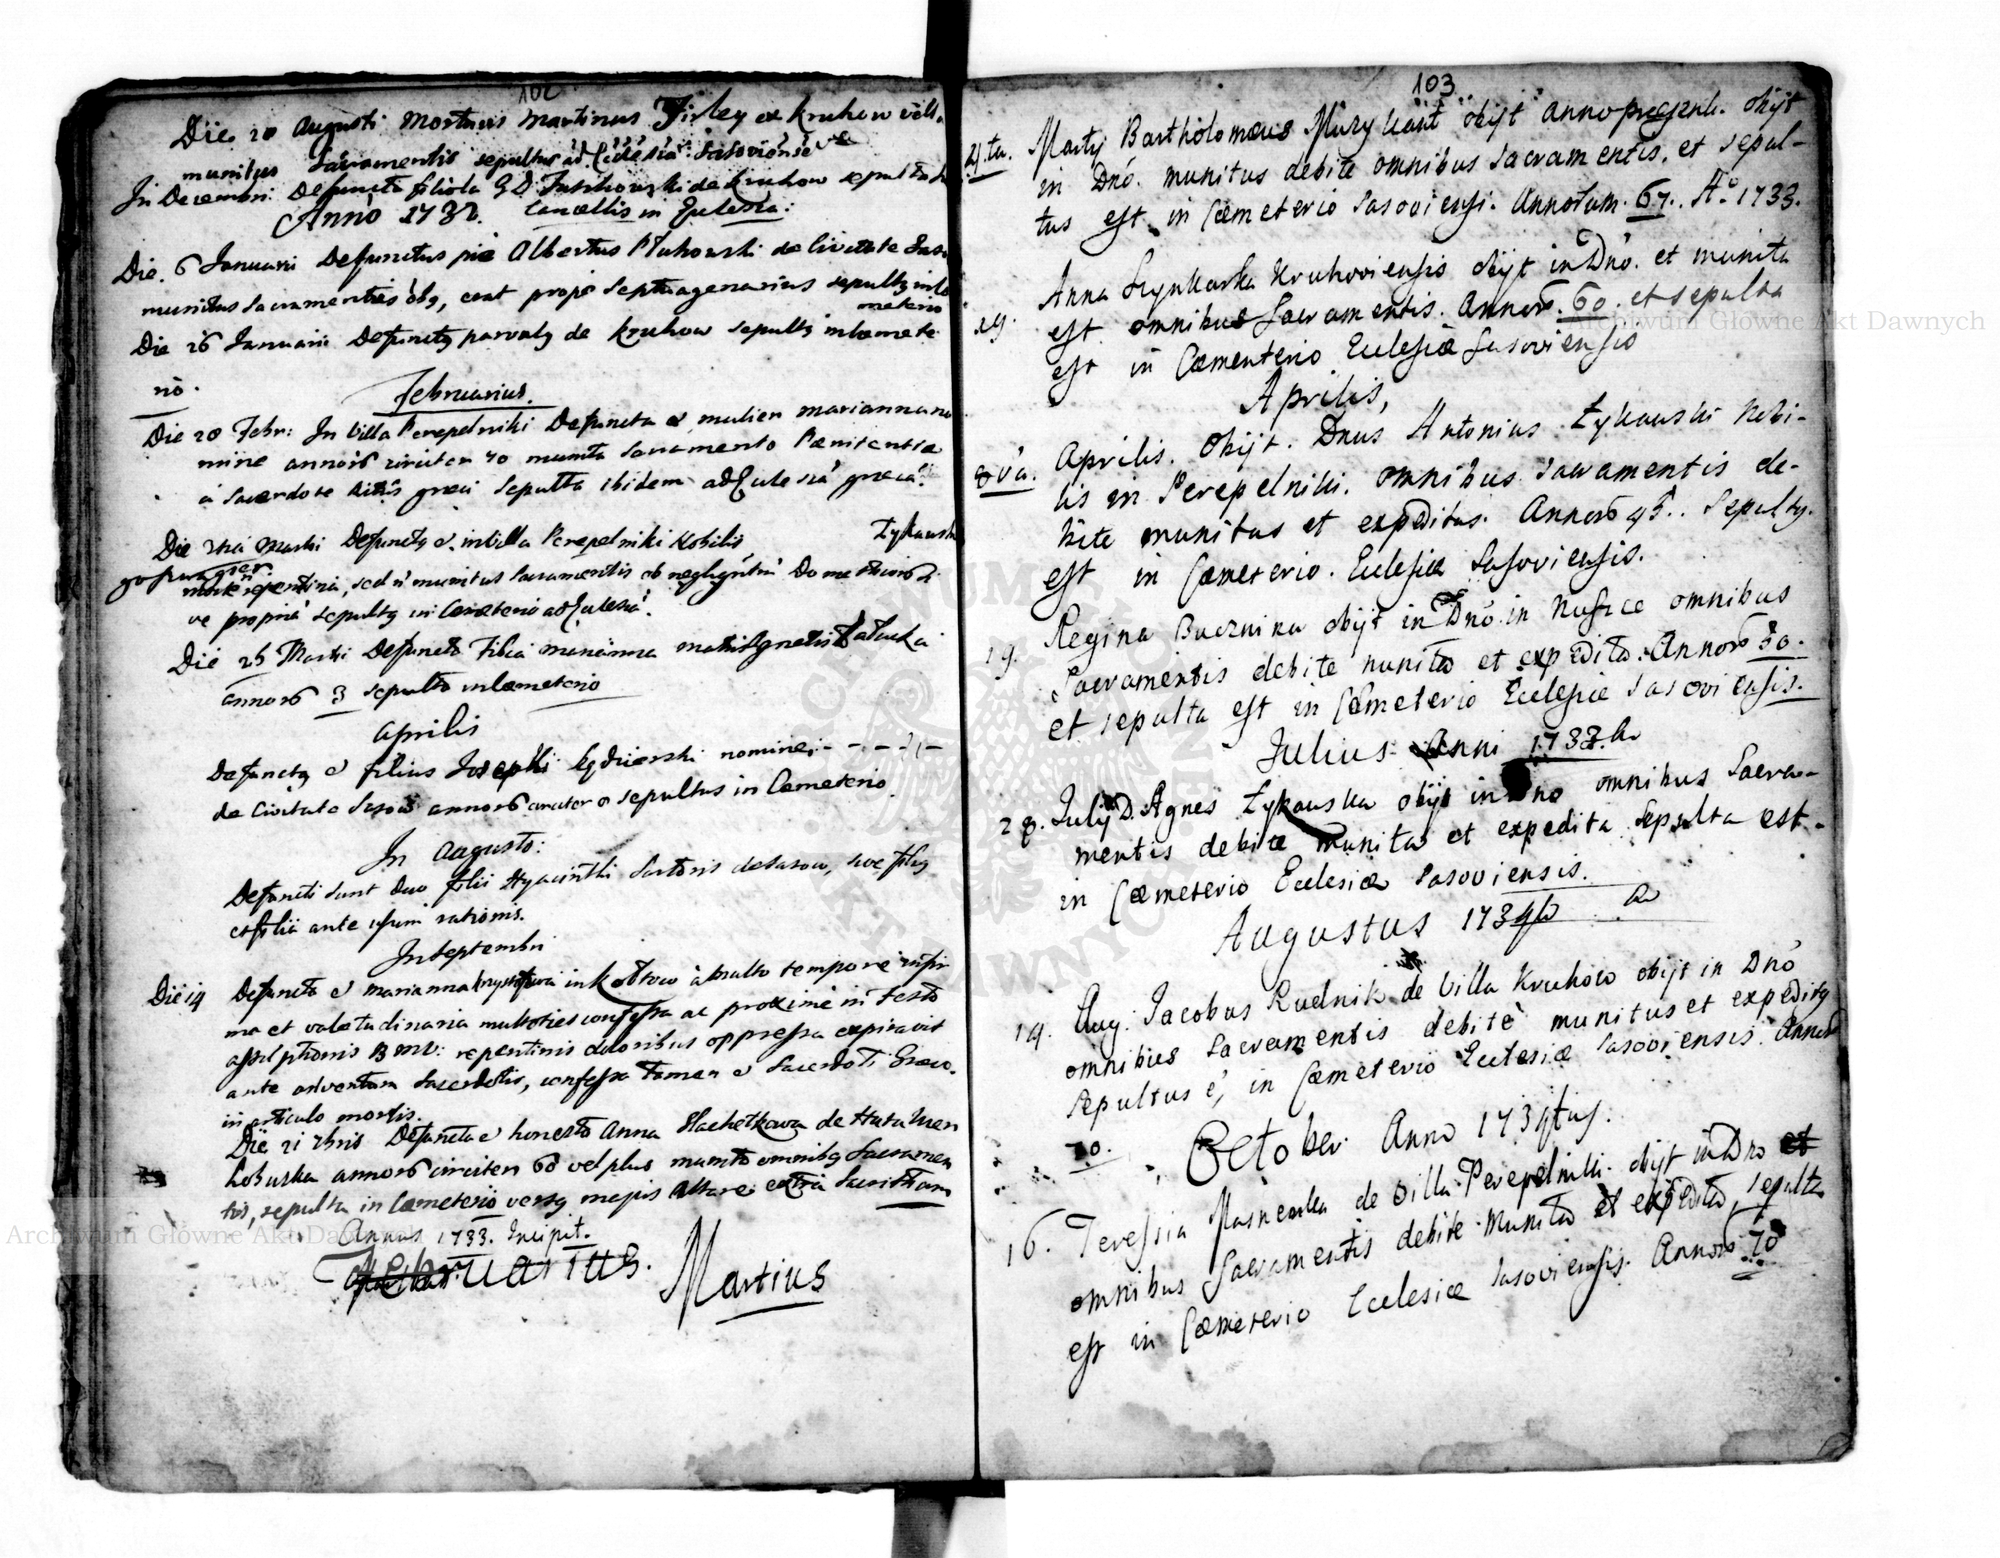 102
Die 20 Augusti Mortuus Martinus Firley ex Kruhow vill.
munitus Sacramentis sepultus ad Ecclesia Sasoviense
In Decembri Defuncta filiola G D de Kruhow sepulta
Anno 1732. Cancellis in Eclesia:
Die. 6 Januarii Defunctus pie Albertus de Civitate Saso
munitus Sacramentis obq, erat prope Septuagenarius sepultq in Ce
meterio
Die 26 Januarii Defunctq parvulq de Kruhow sepultq in Cœmete
rio.
Februarius.
Die 20 Febr: In Villa Perepelniki Defuncta e mulier Marianna no
mine annorō circiter 40 munita Sacramento Pœnitentiæ
a Sacerdote Ritus græci sepulta ibidem ad Eclesiā græcā
Die Martii Defunctq e. in Villa Perepelniki Nobilis Zykowski
morte repentina, sed n munitus Sacramentis ob negligentiā Domesticorō si
ve propriā sepultq in Cœmeterio ad Eclesiā.
Die 25 Martii Defuncta Filia Marianna matris Agnetis
annorō 3 sepulta in Cœmeterio
Aprilis
Defunctq e filius Josephi nomine - - - - -
de Civitate Sasow annorō circiter sepultus in Cœmeterio
In Augusto:
Defuncti sunt duo filii Hyacinthi Sartoris de Sasow, sive filiq
et filia ante usum rationis.
In Septembri
Die 14 Defuncta e Marianna in Koltow à multo tempore infir
ma et valetudinaria multoties confessa ac proxime in Festo
Assumptionis B M V: repentinis doloribus oppressa expiravit
ante adventum Sacerdotis, confessa tamen e Sacerdoti Græco
in articulo mortis.
Die 21 Defuncta e honesta Anna de Huta
annorō circiter 60 vel plus munita omnibq Sacramen
tis, sepulta in Cœmeterio versq magis Altare extra Sacristiam
Annus 1733. Incipit.
Februarius. Martius
103
21.ta. Martij Bartholomæus obijt anno præsenti. obijt
in Dnō. munitus debite omnibus Sacramentis. et sepul-
tus est in Cœmeterio Sasoviensi. Annorum. 67. Aº 1733.
29. Anna Szynkarka Kruhoviensis obijt in Dnō. et munita
est omnibus Sacramentis. Annorō. 60. et sepulta
est in Cœmenterio Eclesiæ Sasoviensis
Aprilis,
8va. Aprilis. Obijt. Dnus Antonius Zykowski Nobi-
lis in Perepelniki. omnibus Sacramentis de-
bite munitus et expeditus. Annorō 95. Sepultq.
est in Cœmeterio. Eclesiæ Sasoviensis.
19. Regina obijt in Dnō in omnibus
Sacramentis debite munita et expedita. Annorō 30.
et sepulta est in Cœmeterio Ecclesiæ Sasoviensis.
Julius Anni 1733.
28. Julij D. Agnes Zykowska obijt in Dno omnibus Sacra-
mentis debite munita et expedita sepulta est.
in Cœmeterio Ecclesiæ Sasoviensis.
Augustus 173
19. Aug: Jacobus Rudnik de Villa Kruhow obijt in Dnō
omnibus Sacramentis debitè munitus et expeditq
Sepultus e, in Cœmeterio Ecclesiæ Sasoviensis Annorō
70.
October Anno 173
16. Teressia de Villa Perepelniki. obijt in Dno et
omnibus Sacramentis debite munita et expedita, sepulta
est in Cœmeterio Ecclesiæ Sasoviensis. Annorō 70
Archiwum Główne Akt Dawnych
Archiwum Główne Akt Dawnych
ARCHIWUM GŁÓWNE AKT DAWNYCH